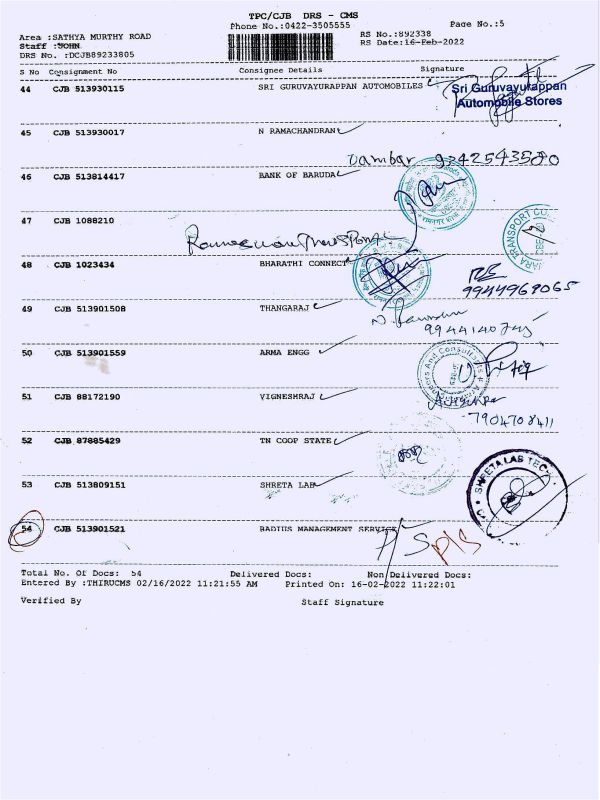 TPC/CJB DRS - CMS
Phone No.:0422-3505555 Page No.:5
Area :SATHYA MURTHY ROAD RS No.:892338
Staff :JOHN RS Date:16-Feb-2022
DRS No. :DCJB89233805
S No Consignment No Consignee Details Signature
44 CJB 513930115 SRI GURUVAYURAPPAN AUTOMOBILES Sri Guruvayurappan
Automobile Stores
45 CJB 513930017 N RAMACHANDRAN
46 CJB 513814417 BANK OF BARUDA
47 CJB 1088210
48 CJB 1023434 BHARATHI CONNECT
9944969065
49 CJB 513901508 THANGARAJ
50 CJB 513901559 ARMA ENGG
51 CJB 88172190 VIGNESHRAJ
7904708411
52 CJB 87885429 TN COOP STATE
53 CJB 513809151 SHRETA LAB SHRETA LAB TECH
54 CJB 513901521 RADIUS MANAGEMENT SERVICE
Total No. Of Docs: 54 Delivered Docs: Non Delivered Docs:
Entered By :THIRUCMS 02/16/2022 11:21:55 AM Printed On: 16-02-2022 11:22:01
Verified By Staff Signature